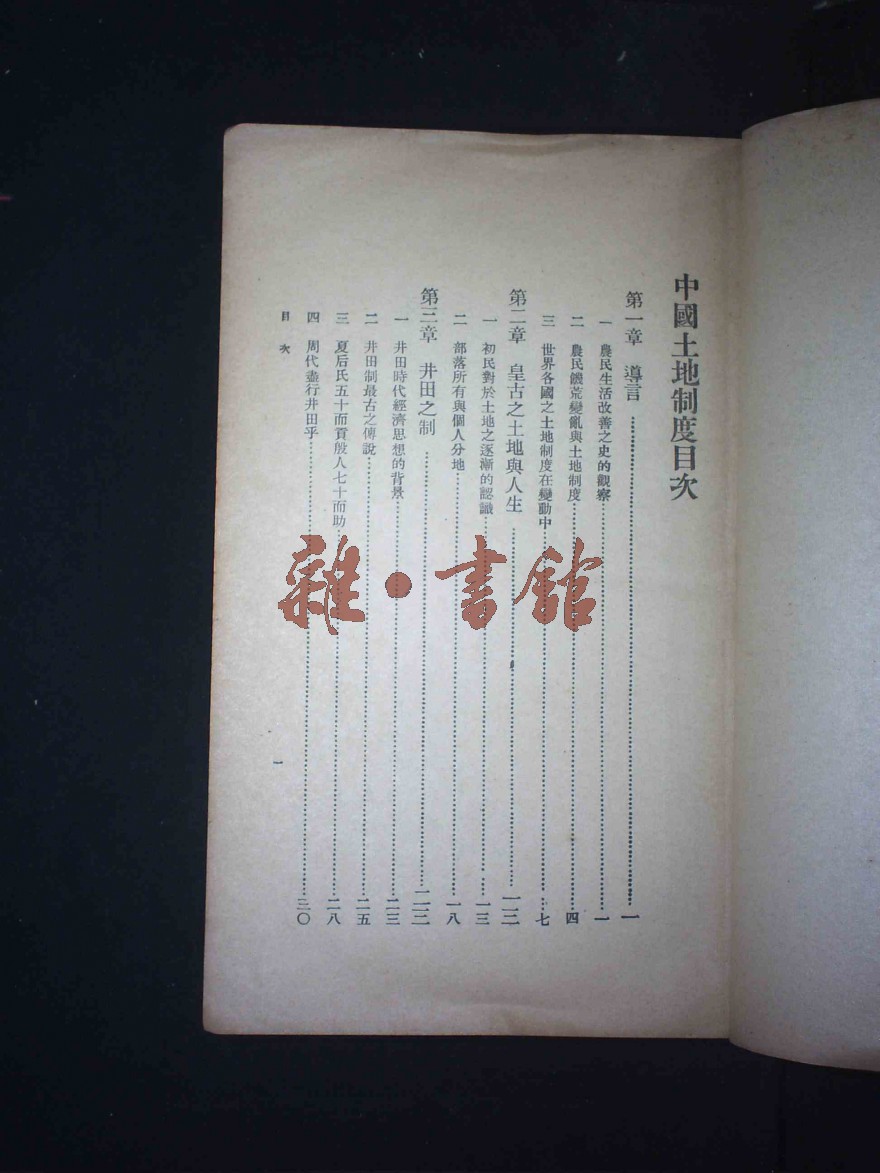 中國土地制度目次
第一章 導言……一
一 農民生活改善之史的觀察……一
二 農民饑荒變亂與土地制度……四
三 世界各國之土地制度在變動中……七
第二章 皇古之土地與人生……一三
一 初民對於土地之逐漸的認識……一三
二 部落所有與個人分地……一八
第三章 井田之制……二三
一 井田時代經濟思想的背景……二三
二 井田制最古之傳說……二五
三 夏后氏五十而貢殷人七十而助……二八
四 周代盡行井田乎……三〇
目次
一
雜·書館